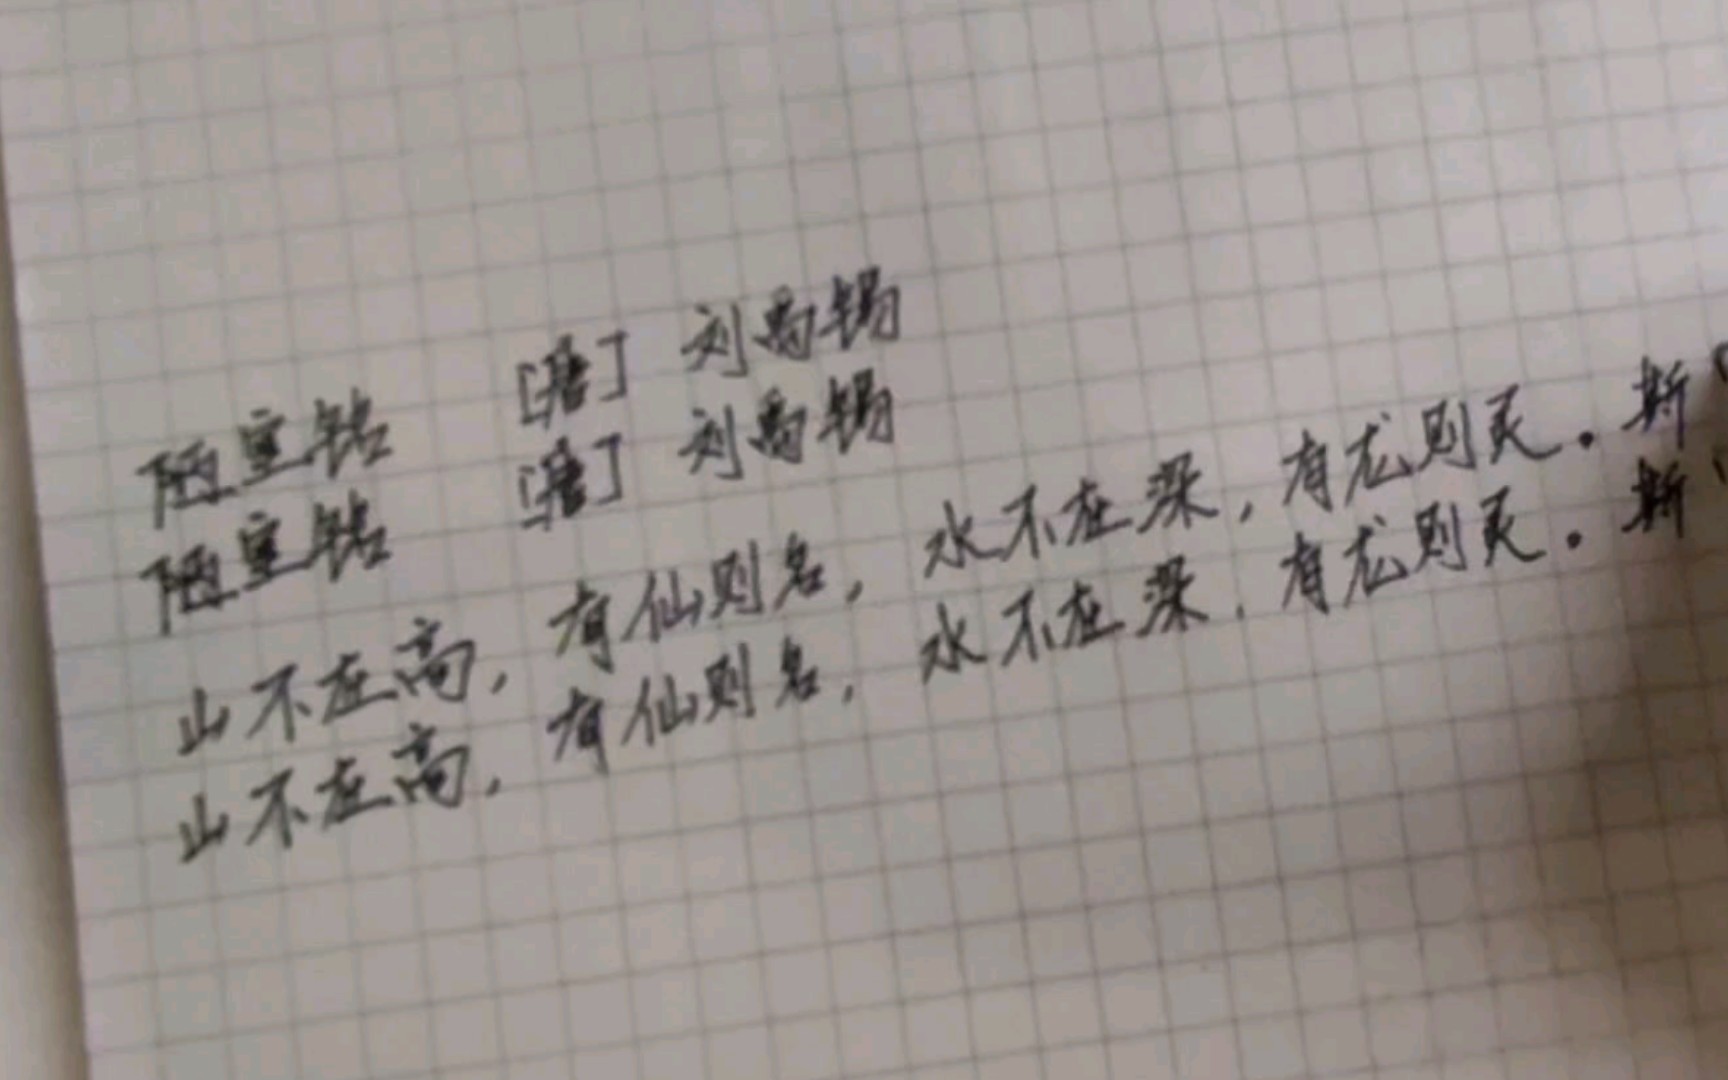 陋室铭 [唐] 刘禹锡
陋室铭 [唐] 刘禹锡
山不在高，有仙则名，水不在深，有龙则灵。斯
山不在高，有仙则名，水不在深，有龙则灵。斯